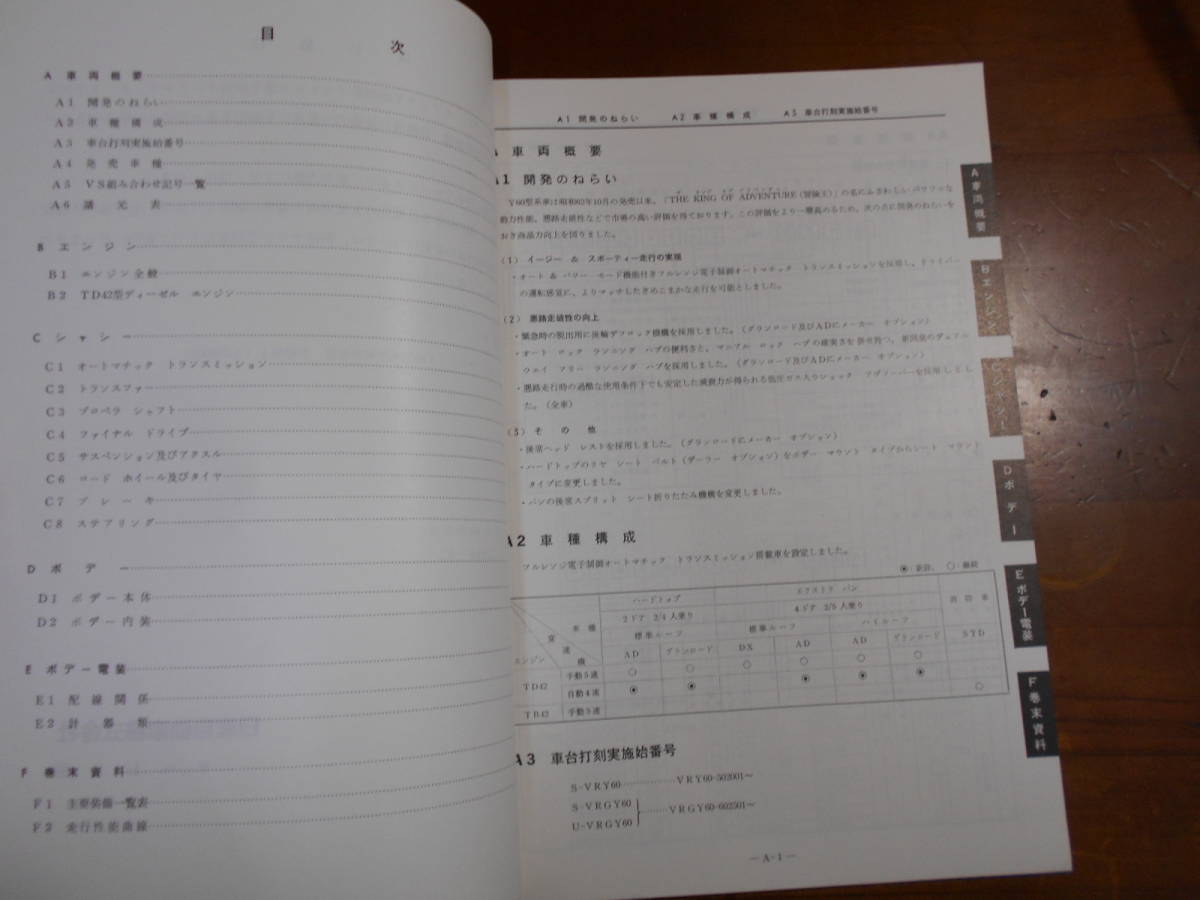 目次
A 車両概要
A1 開発のねらい
A2 車種構成
A3 車台打刻実施始番号
A4 発売車種
A5 VS組み合わせ記号一覧
A6 諸元表
B エンジン
B1 エンジン全般
B2 TD42型ディーゼル エンジン
C シャシー
C1 オートマチック トランスミッション
C2 トランスファー
C3 プロペラ シャフト
C4 ファイナル ドライブ
C5 サスペンション及びアクスル
C6 ロード ホイール及びタイヤ
C7 ブレーキ
C8 ステアリング
D ボデー
D1 ボデー本体
D2 ボデー内装
E ボデー電装
E1 配線関係
E2 計器類
F 巻末資料
F1 主要装備一覧表
F2 走行性能曲線
A1 開発のねらい A2 車種構成 A3 車台打刻実施始番号
車両概要
A1 開発のねらい
Y60型系車は昭和62年10月の発売以来、「THE KING OF ADVENTURE(冒険王)」の名にふさわしいパワフルな
動力性能、悪路走破性などで市場の高い評価を得ております。この評価をより一層高めるため、次の点に開発のねらいを
おき商品力向上を図りました。
(1) イージー & スポーティー走行の実現
・オート & パワー モード機能付きフルレンジ電子制御オートマチック トランスミッションを採用し、ドライバー
の運転感覚に、よりマッチしたきめこまかな走行を可能としました。
(2) 悪路走破性の向上
・緊急時の脱出用に後輪デフロック機構を採用しました。(グランロード及びADにメーカー オプション)
・オート ロック ランニング ハブの便利さと、マニアル ロック ハブの確実さを併せ持つ、新開発のデュアル
ウェイ フリー ランニング ハブを採用しました。(グランロード及びADにメーカー オプション)
・悪路走行時の過酷な使用条件下でも安定した減衰力が得られる低圧ガス入りショック アブソーバーを採用しまし
た。(全車)
(3) その他
・後席ヘッド レストを採用しました。(グランロードにメーカー オプション)
・ハードトップのリヤ シート ベルト(ディーラー オプション)をボデー マウント タイプからシート マウント
タイプに変更しました。
・バンの後席スプリット シート折りたたみ機構を変更しました。
A2 車種構成
フルレンジ電子制御オートマチック トランスミッション搭載車を設定しました。
◉:新設、 ○:継続
車種 ハードトップ エクストラ バン 消防車
2ドア 2/4人乗り 4ドア 2/5人乗り
変速機 標準ルーフ 標準ルーフ ハイルーフ
エンジン AD グランロード DX AD AD グランロード STD
TD42 手動5速 ○ ○ ○ ○ ○ ○
自動4速 ◉ ◉ ◉ ◉ ◉
TB42 手動5速 ○
A3 車台打刻実施始番号
S-VRY60…………VRY60-502001~
S-VRGY60
……VRGY60-602501~
U-VRGY60
—A-1—
A 車両概要
B エンジン
C シャシー
D ボデー
E ボデー電装
F 巻末資料